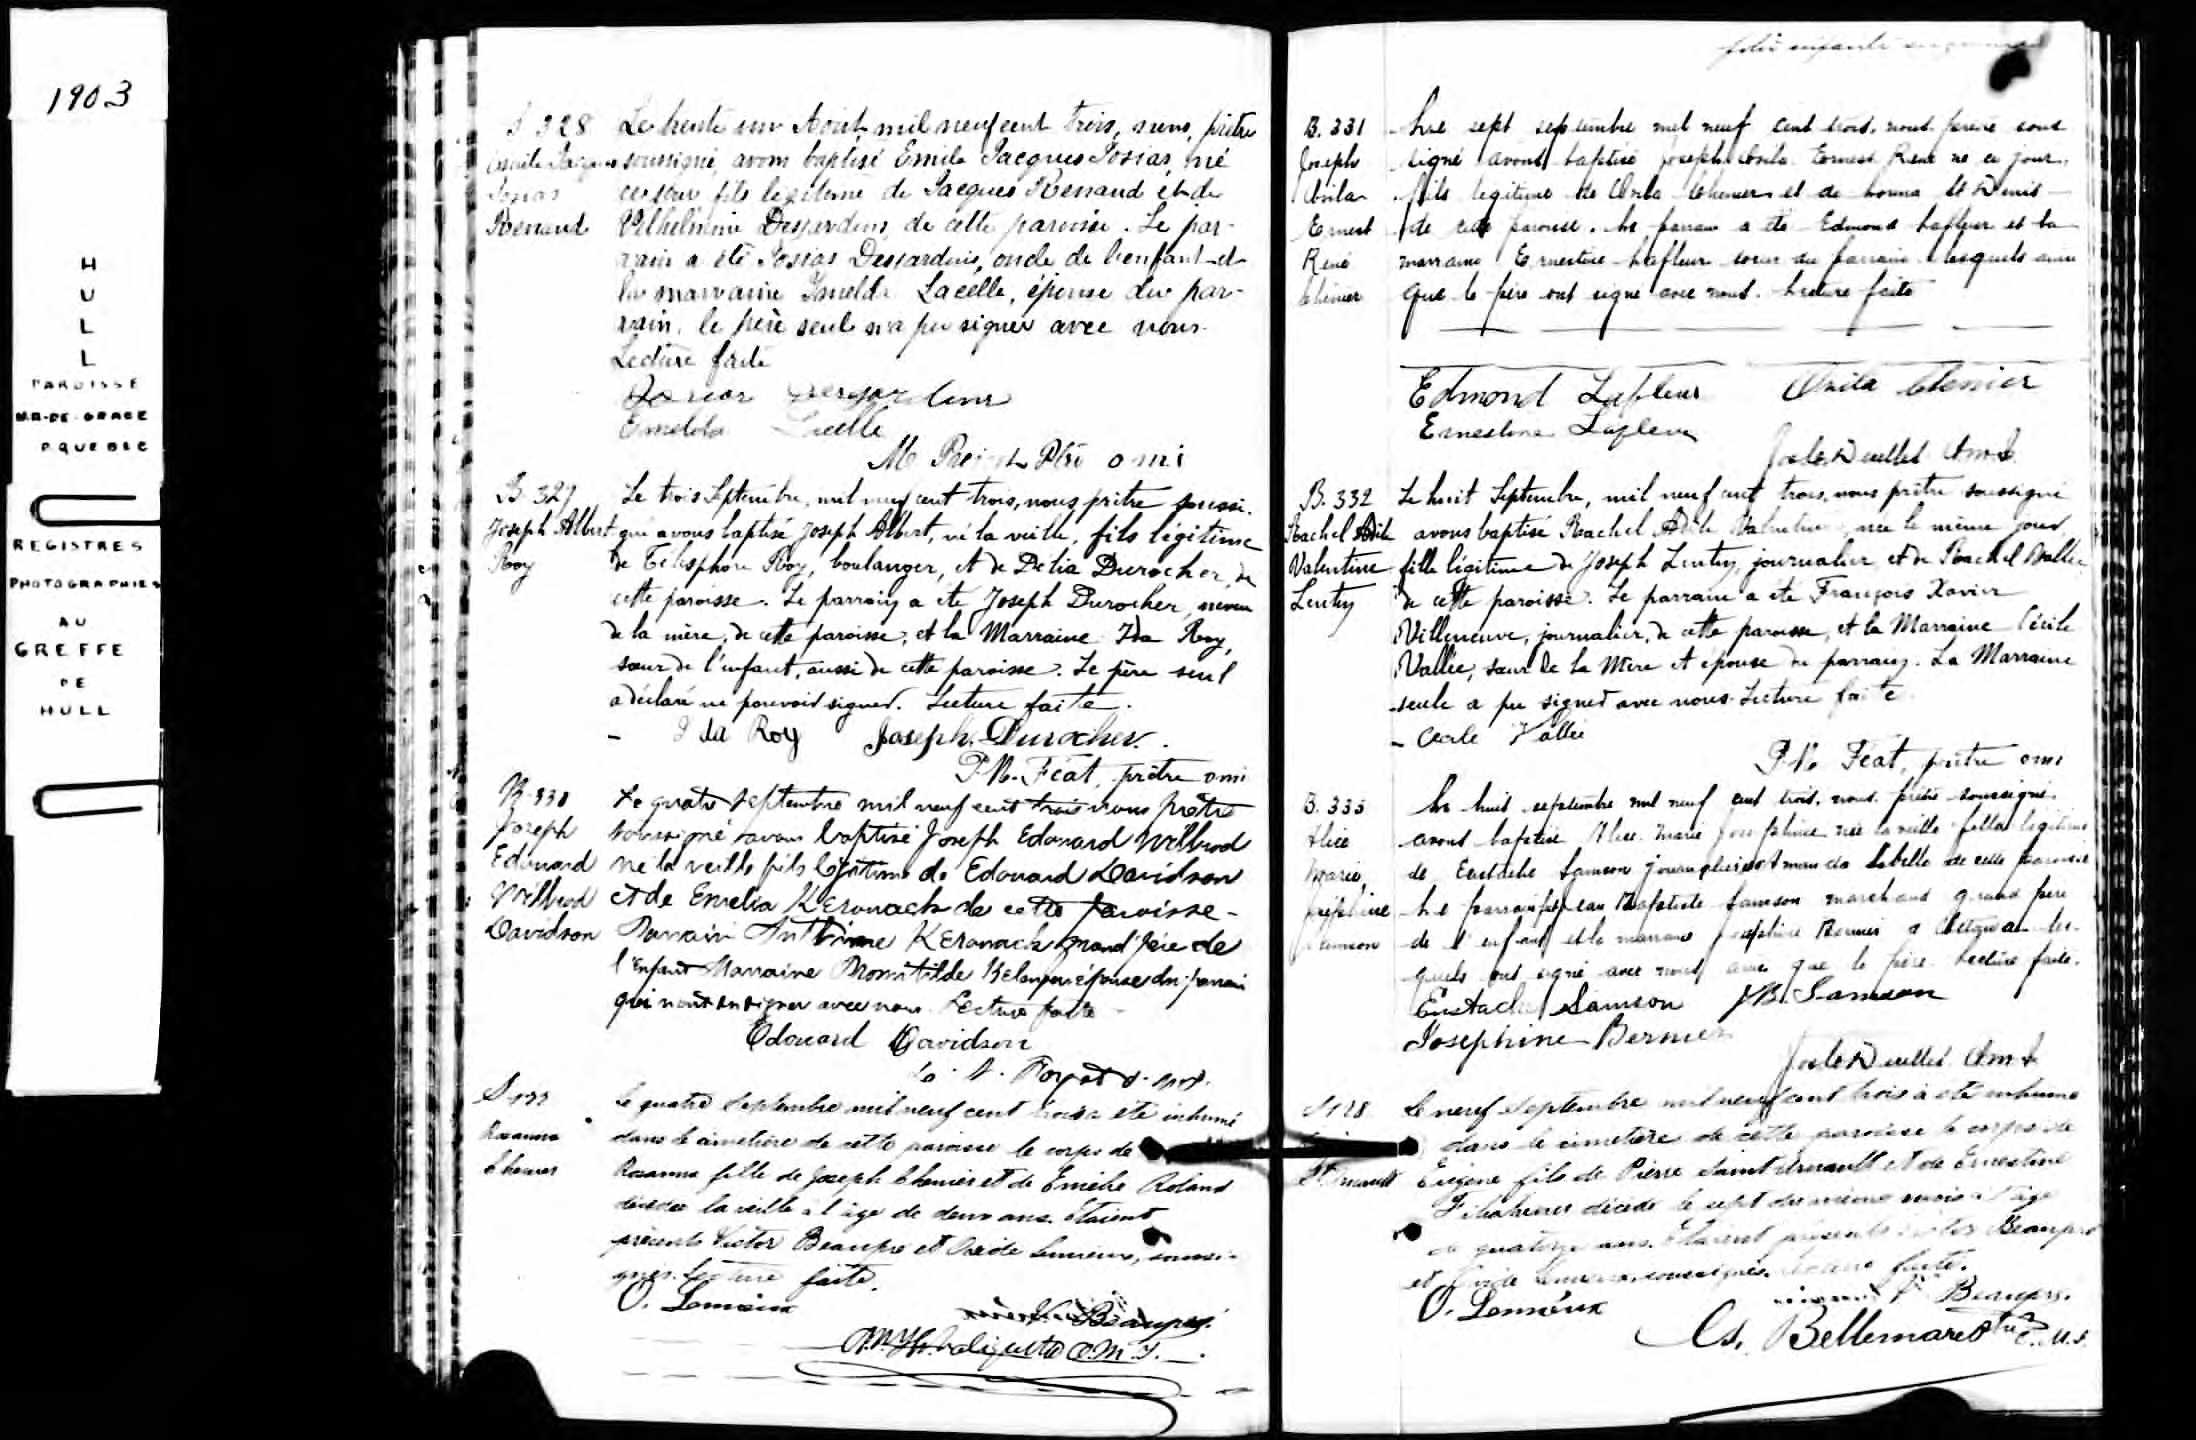 1903
H
U
L
L
PAROISSE
N.D.-DE-GRACE
P. QUEBEC
REGISTRES
PHOTOGRAPHIES
AU
GREFFE
DE
HULL
328
Emile Jacques
Josias
Renaud
Le trente un Août mil neuf cent trois, nous, prêtre
soussigné, avons baptisé Emile Jacques Josias, né
ce jour fils légitime de Jacques Renaud et de
Wilhelmine Desjardins, de cette paroisse. Le par-
rain a été Josias Desjardins, oncle de l'enfant et
la marraine Imelda Lacelle, épouse du par-
rain. le père seul n'a pu signer avec nous.
Lecture faite
Josias Desjardins
Emelda Lacelle
Ptre o m i
B. 327
Joseph Albert
Roy
Le trois Septembre, mil neuf cent trois, nous prêtre soussi-
gné avons baptisé Joseph Albert, né la veille, fils légitime
de Télesphore Roy, boulanger, et de Délia Durocher, de
cette paroisse. Le parrain a été Joseph Durocher, neveu
de la mère, de cette paroisse, et la Marraine Ida Roy,
sœur de l'enfant, aussi de cette paroisse. Le père seul
a déclaré ne pouvoir signer. Lecture faite.
Ida Roy Joseph Durocher.
P. M. Féat, prêtre omi
B. 330
Joseph
Edouard
Wilbrod
Davidson
Le quatre septembre mil neuf cent trois nous prêtre
soussigné avons baptisé Joseph Edouard Wilbrod
né la veille fils légitime de Edouard Davidson
et de Emelia Keronack de cette paroisse -
Parrain Anthime Keronack grand père de
l'enfant Marraine Domitilde Belanger épouse du parrain
qui n'ont su signer avec nous. Lecture faite -
Edouard Davidson
S
Rosanna
Chenier
Le quatre Septembre mil neuf cent trois a été inhumé
dans le cimetière de cette paroisse le corps de
Rosanna fille de Joseph Chenier et de Emélie Roland
décédée la veille à l'âge de deux ans. Etaient
présents Victor Beaupré et Ovide Lemieux, soussi-
gnés. Lecture faite.
O. Lemieux
V. Beaupré.
O.M.I.
B. 331
Joseph
Ovila
Ernest
René
Chénier
Le sept septembre mil neuf cent trois, nous prêtre sous
signé avons baptisé Joseph Ovila Ernest René né ce jour,
fils légitime de Ovila Chenier et de St Denis
de cette paroisse. Le parrain a été Edmond Lafleur et la
marraine Ernestine Lafleur sœur du parrain lesquels ainsi
que le père ont signé avec nous. Lecture faite
Edmond Lafleur Ovila Chenier
Ernestine Lafleur
B. 332
Rachel Adèle
Valentine
Lentry
Le huit Septembre, mil neuf cent trois, nous prêtre soussigné
avons baptisé Rachel Adèle Valentine, née le même jour,
fille légitime de Joseph Lentry, journalier, et de Rachel Vallée
de cette paroisse. Le parrain a été François Xavier
Villeneuve, journalier, de cette paroisse, et la Marraine Cécile
Vallée, sœur de la Mère et épouse du parrain. La Marraine
seule a pu signer avec nous. Lecture faite.
Cécile Vallée
P. M. Féat, prêtre omi
B. 333
Alice
Marie
Joséphine
Samson
Le huit septembre mil neuf cent trois, nous prêtre soussigné
avons baptisé Alice Marie Joséphine née la veille fille légitime
de Eustache Samson journalier et Labelle de cette paroisse
Le parrain Jean Baptiste Samson marchand grand père
de l'enfant et la marraine Joséphine Bernier les-
quels ont signé avec nous ainsi que le père. Lecture faite.
Eustache Samson J.B. Samson
Josephine Bernier
S 128
Le neuf Septembre mil neuf cent trois a été inhumé
dans le cimetière de cette paroisse le corps de
Eugène fils de Pierre Saint Arnault et de Ernestine
décédé le sept du même mois à l'âge
de quatorze ans. Etaient présents Victor Beaupré
et Ovide Lemieux, soussignés. Lecture faite.
O. Lemieux
V. Beaupré.
Cs. Bellemare Ptre O.M.I.